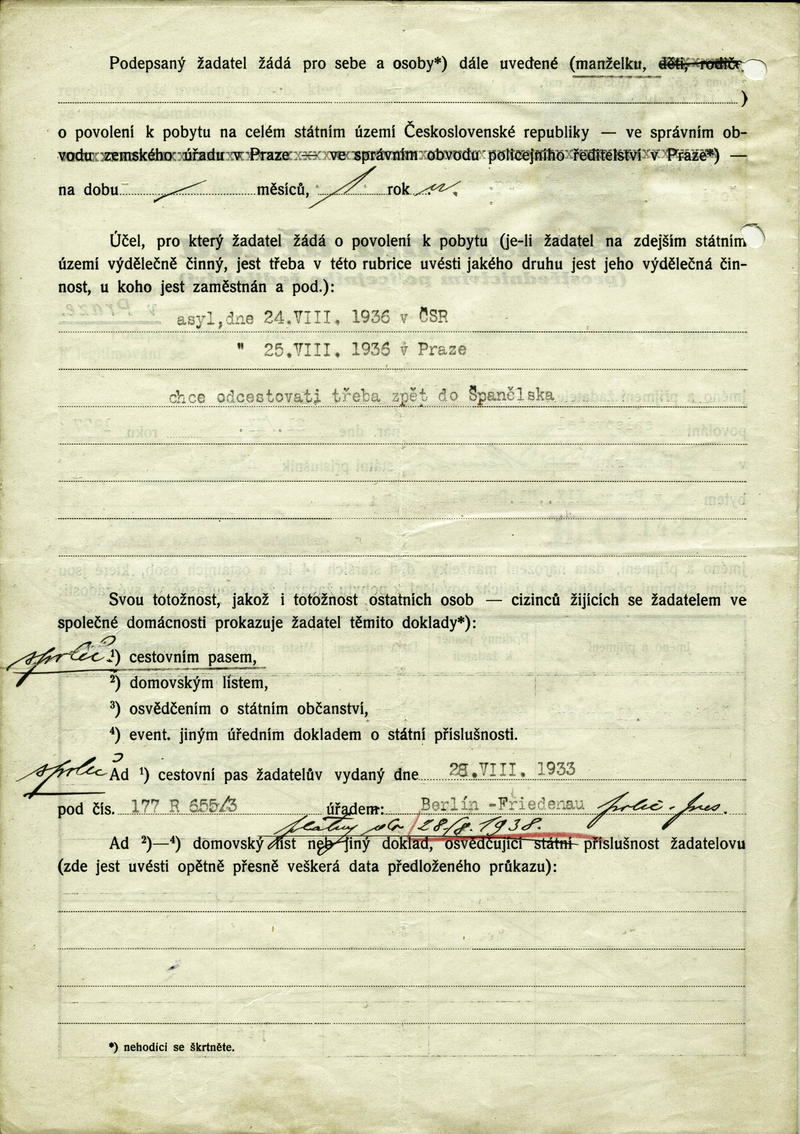 Podepsaný žadatel žádá pro sebe a osoby*) dále uvedené (manželku, děti, rodiče,
)
o povolení k pobytu na celém státním území Československé republiky — ve správním ob-
vodu zemského úřadu v Praze — ve správním obvodu policejního ředitelství v Praze*) —
na dobu / měsíců, 1 rok
Účel, pro který žadatel žádá o povolení k pobytu (je-li žadatel na zdejším státním
území výdělečně činný, jest třeba v této rubrice uvésti jakého druhu jest jeho výdělečná čin-
nost, u koho jest zaměstnán a pod.):
asyl,dne 24.VIII. 1936 v ČSR
" 25.VIII. 1936 v Praze
chce odcestovati třeba zpět do Španělska
Svou totožnost, jakož i totožnost ostatních osob — cizinců žijících se žadatelem ve
společné domácnosti prokazuje žadatel těmito doklady*):
¹) cestovním pasem,
²) domovským listem,
³) osvědčením o státním občanství,
⁴) event. jiným úředním dokladem o státní příslušnosti.
Ad ¹) cestovní pas žadatelův vydaný dne 28.VIII. 1933
pod čís. 177 R 655/3 úřadem: Berlín -Friedenau polic. pres.
platný do 28/8. 1938.
Ad ²)—⁴) domovský list neb jiný doklad, osvědčující státní příslušnost žadatelovu
(zde jest uvésti opětně přesně veškerá data předloženého průkazu):
*) nehodící se škrtněte.